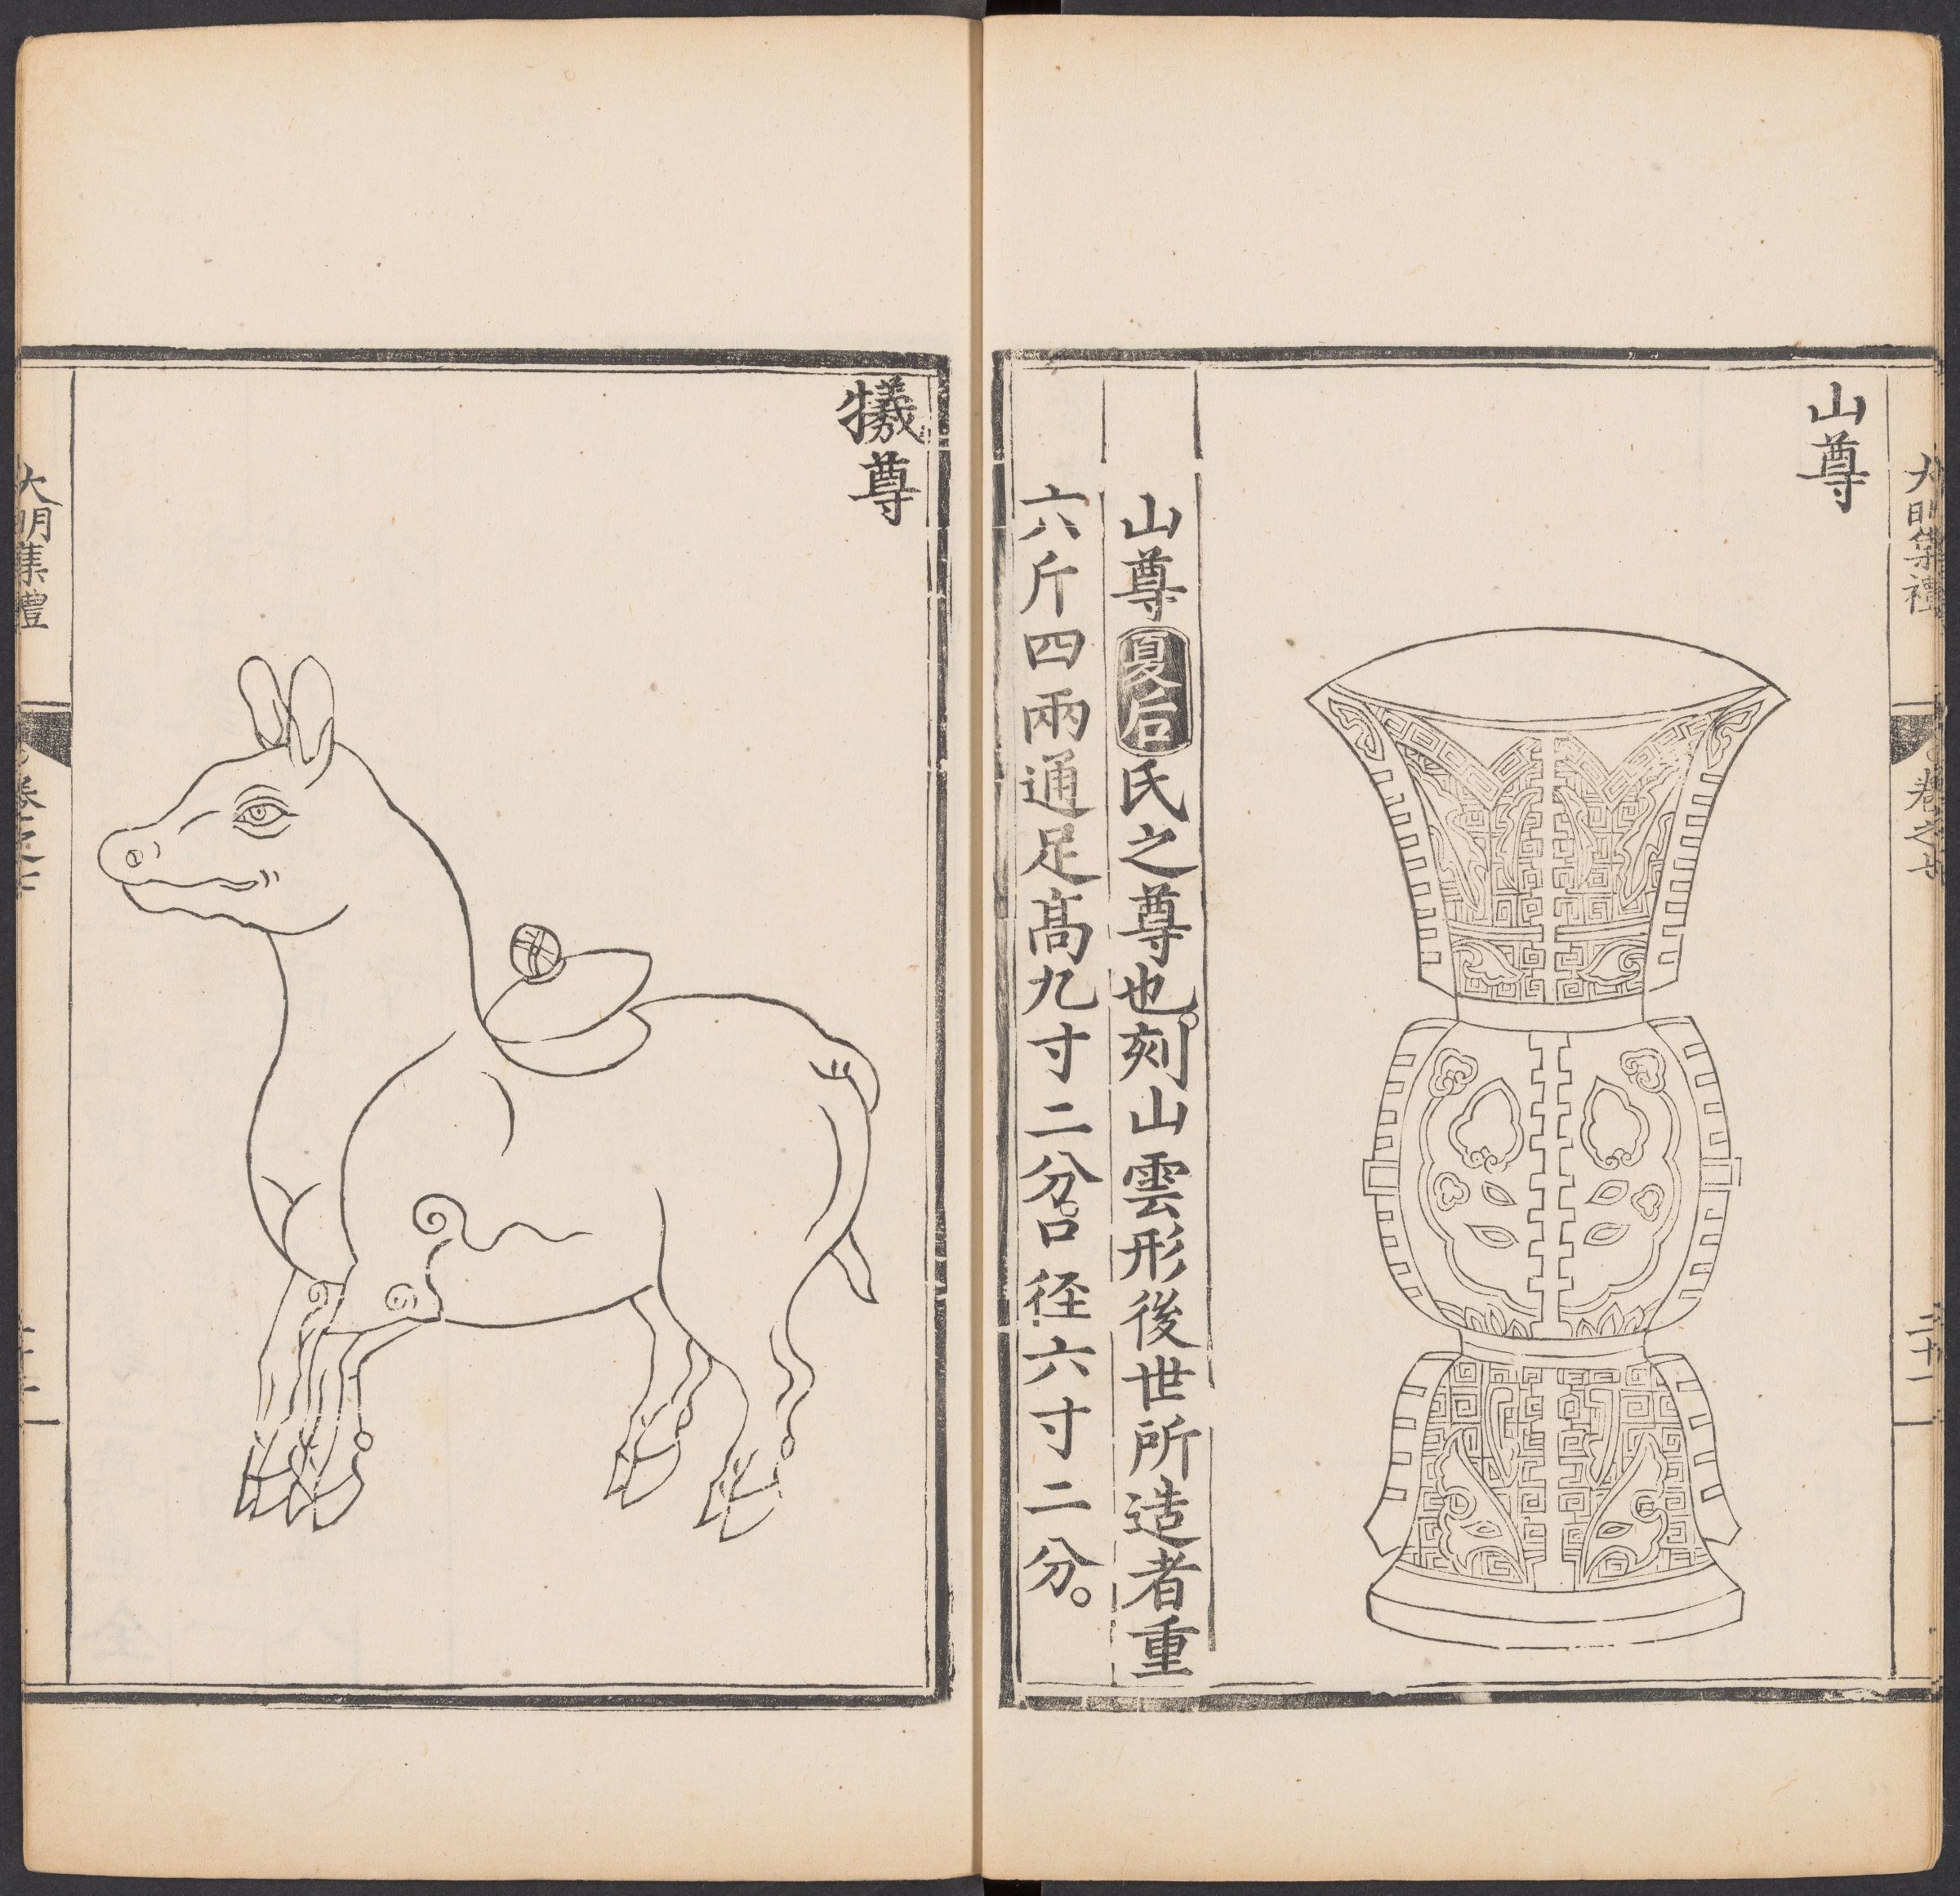 大明集禮
卷之七
二十一
山尊
山尊夏后氏之尊也。刻山雲形後世所造者重
六斤四兩通足髙九寸二分。口径六寸二分。
犧尊
大明集禮
卷之七